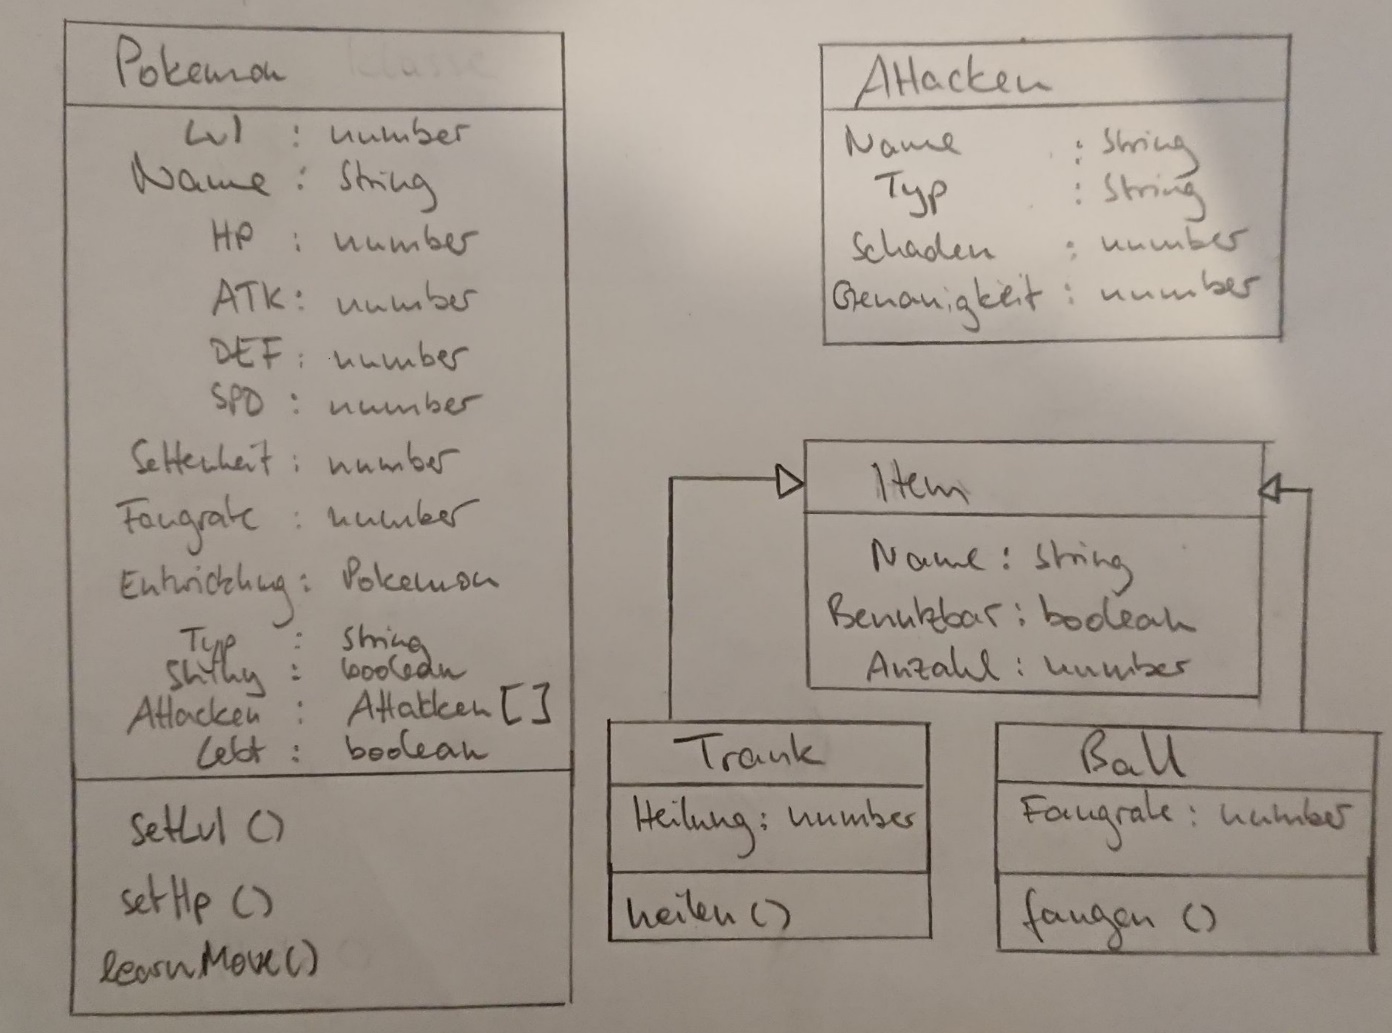 Pokemon
Lvl : number
Name : String
HP : number
ATK : number
DEF : number
SPD : number
Seltenheit : number
Fangrate : number
Entwicklung : Pokemon
Typ : String
Shiny : boolean
Attacken : Attacken []
Lebt : boolean
setLvl ()
setHp ()
learnMove()
Attacken
Name : String
Typ : String
Schaden : number
Genauigkeit : number
Item
Name : String
Benutzbar : boolean
Anzahl : number
Trank
Heilung : number
heilen ()
Ball
Fangrate : number
fangen ()